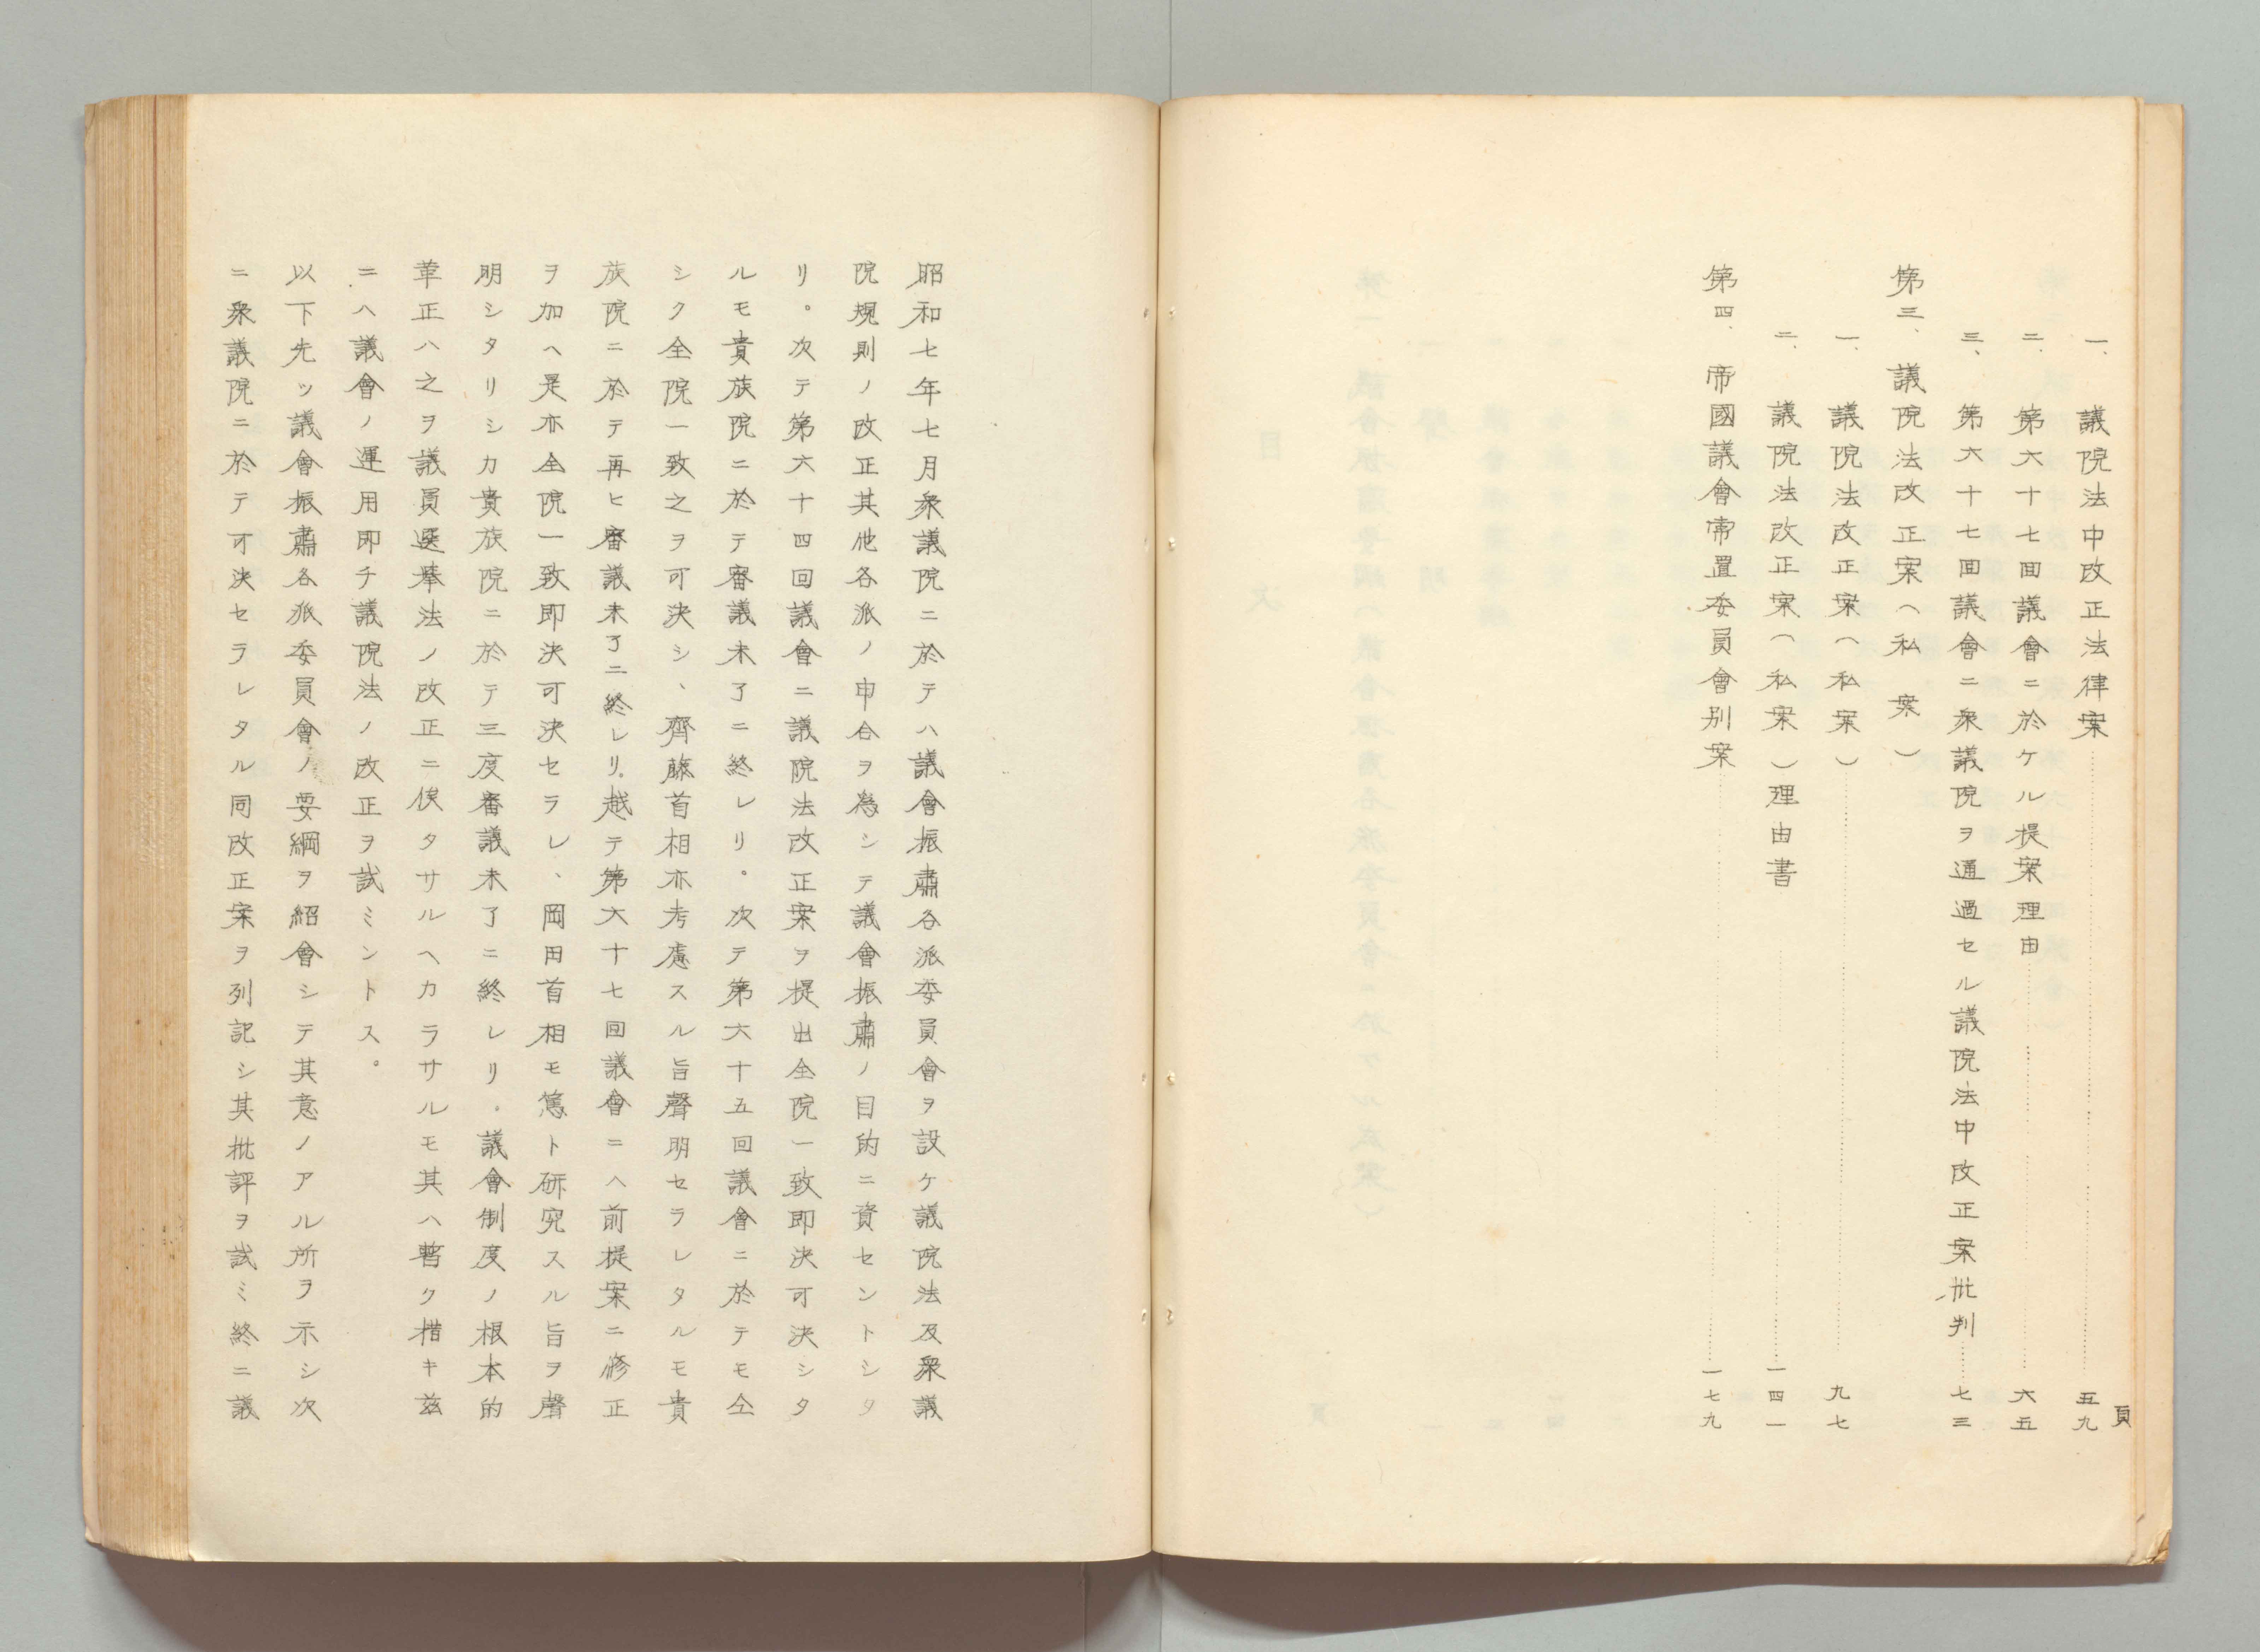 頁
一、議院法中改正法律案……五九
二、第六十七回議會ニ於ケル提案理由……六五
三、第六十七回議會ニ衆議院ヲ通過セル議院法中改正案批判……七三
第三、議院法改正案（私案）
一、議院法改正案（私案）……九七
二、議院法改正案（私案）理由書……一四一
第四、帝國議會常置委員會別案……一七九
昭和七年七月衆議院ニ於テハ議會振肅各派委員會ヲ設ケ議院法及衆議
院規則ノ改正其他各派ノ申合ヲ為シテ議會振肅ノ目的ニ資セントシタ
リ。次テ第六十四回議會ニ議院法改正案ヲ提出全院一致即決可決シタ
ルモ貴族院ニ於テ審議未了ニ終レリ。次テ第六十五回議會ニ於テモ仝
シク全院一致之ヲ可決シ、齊藤首相亦考慮スル旨聲明セラレタルモ貴
族院ニ於テ再ヒ審議未了ニ終レリ。越テ第六十七回議會ニハ前提案ニ修正
ヲ加ヘ是亦全院一致即決可決セラレ、岡田首相モ篤ト研究スル旨ヲ聲
明シタリシカ貴族院ニ於テ三度審議未了ニ終レリ。議會制度ノ根本的
革正ハ之ヲ議員選擧法ノ改正ニ俟タサルヘカラサルモ其ハ暫ク措キ茲
ニハ議會ノ運用即チ議院法ノ改正ヲ試ミントス。
以下先ツ議會振肅各派委員會ノ要綱ヲ紹會シテ其意ノアル所ヲ示シ次
ニ衆議院ニ於テ可決セラレタル同改正案ヲ列記シ其批評ヲ試ミ終ニ議